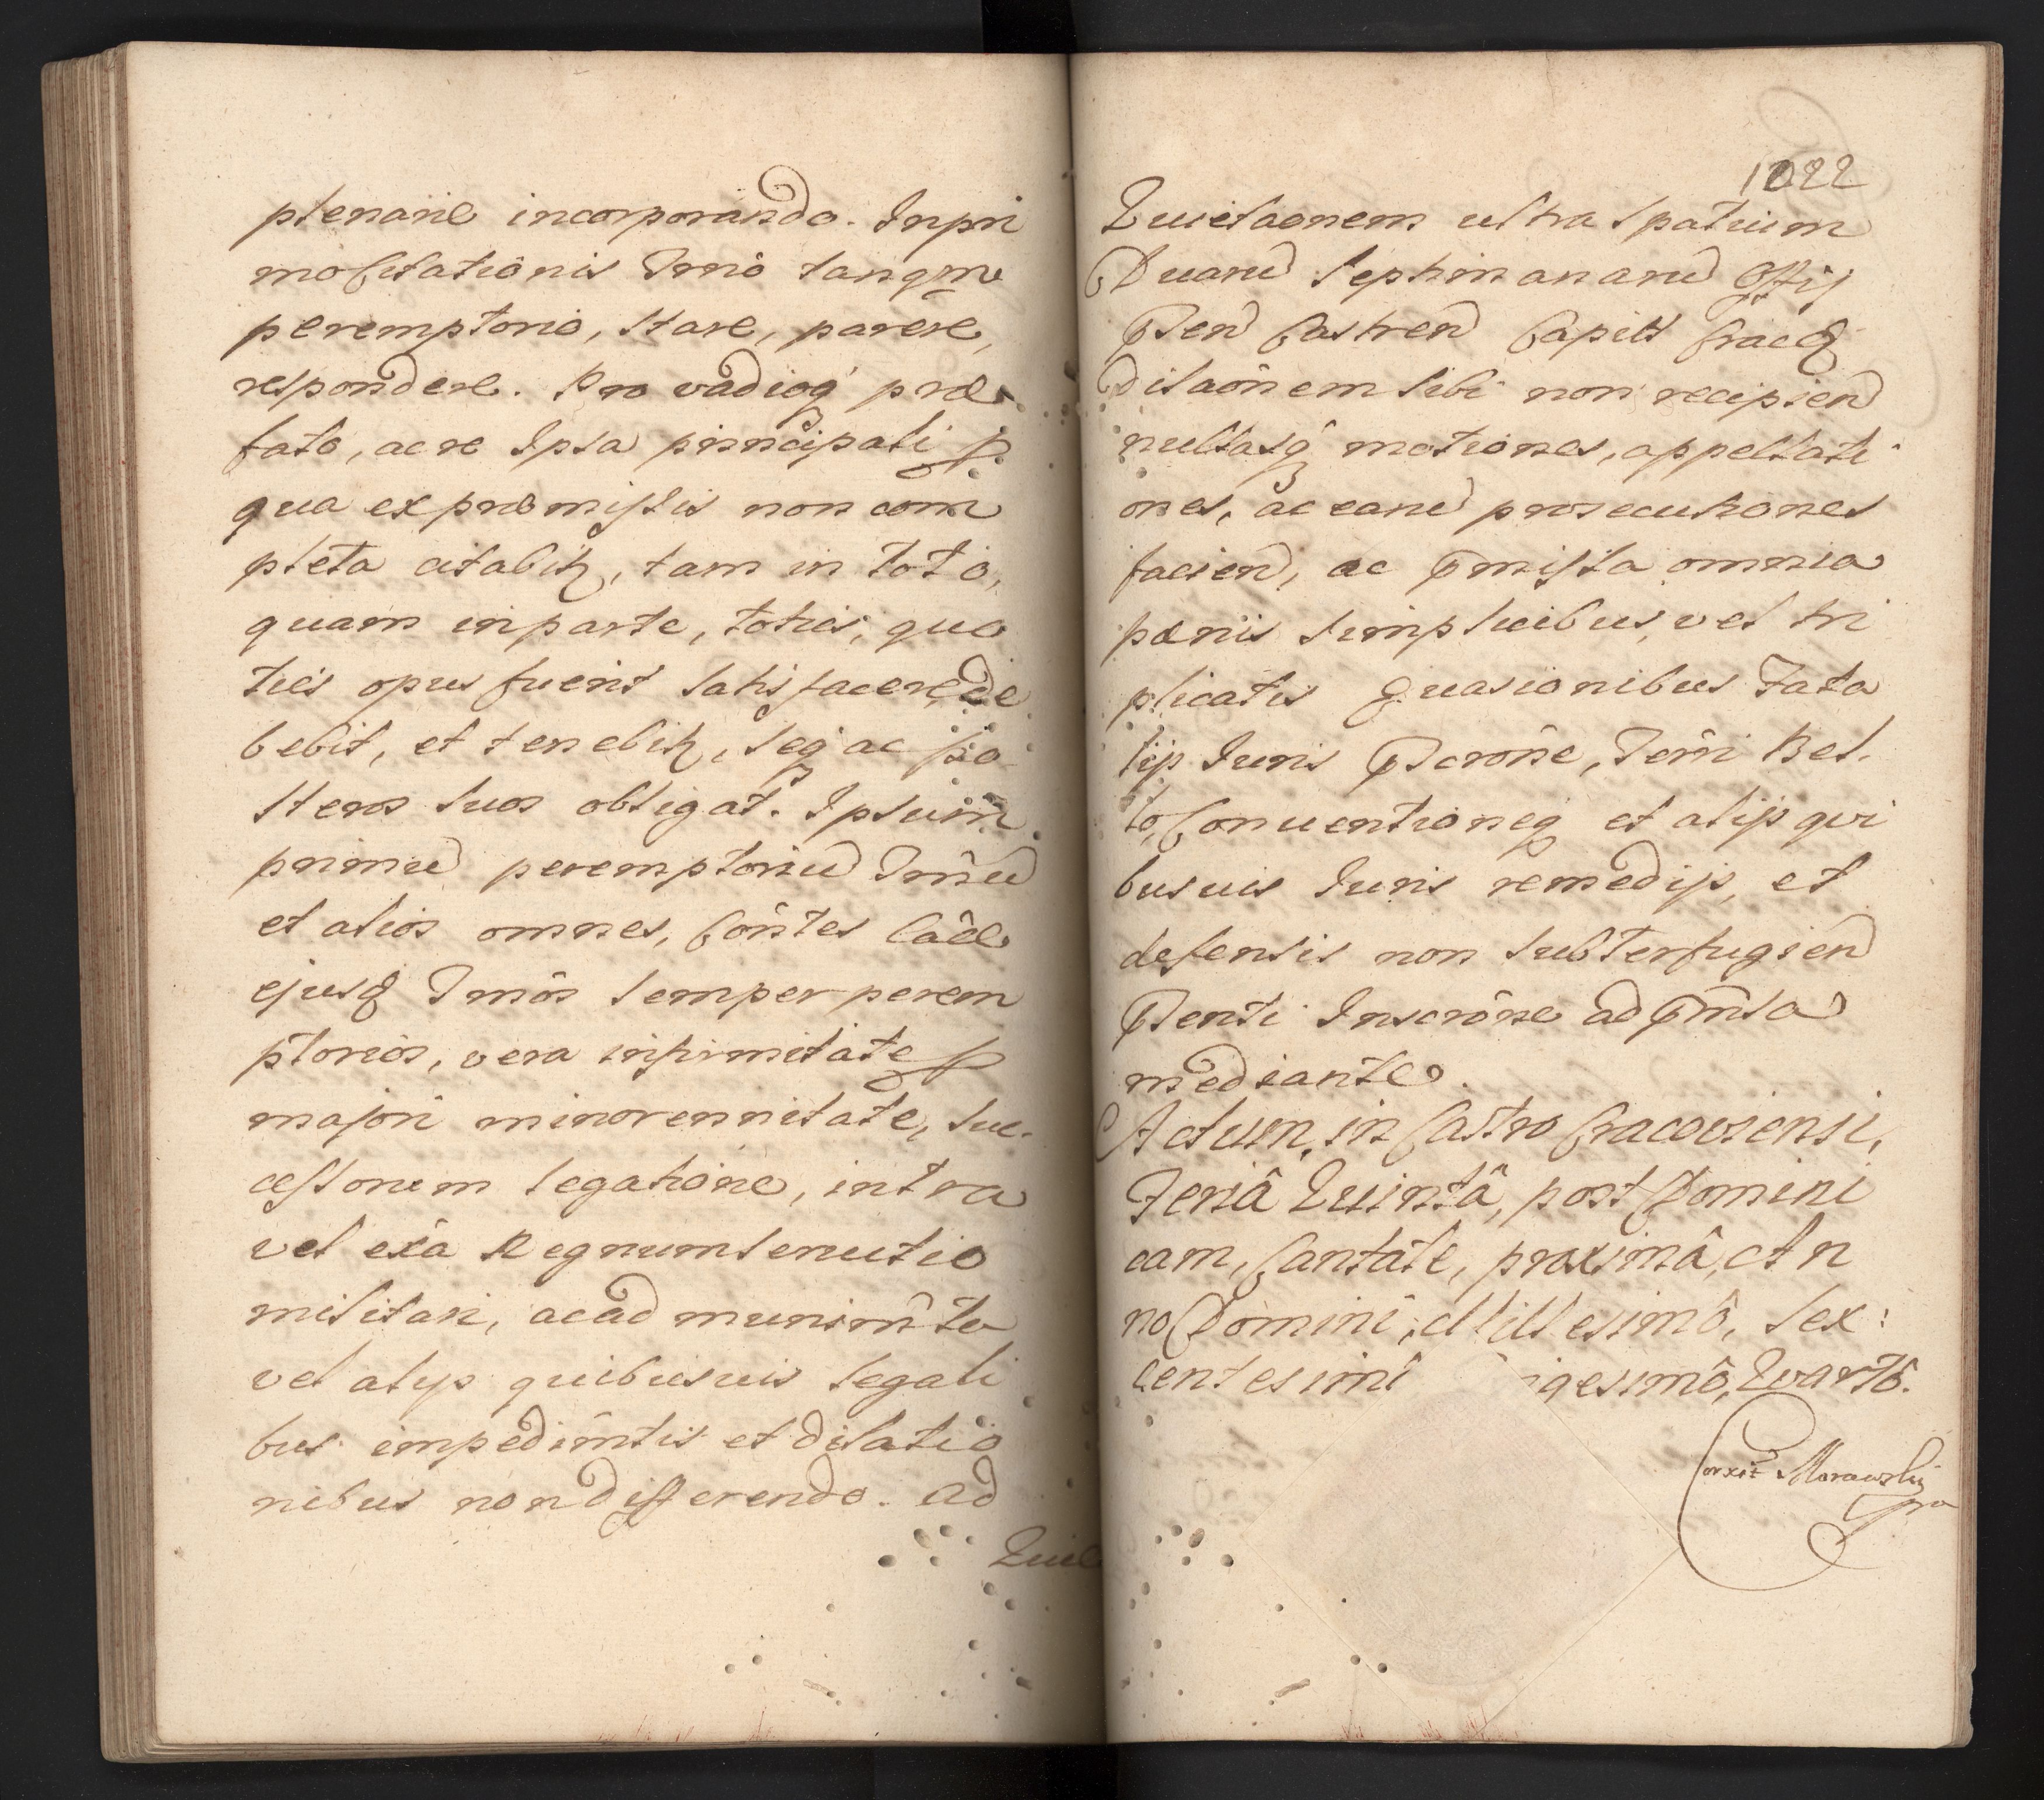 plenarie incorporando. Inpri
mo Citationis Trno tanqm
peremptorio, stare, parere,
respondere. Pro vadioq præ
fato, ac re Ipsa principali p
qua ex præmissis non com
pleta citabitr, tam in toto,
quam in parte, toties, quo
ties opus fuerit satisfacere, de
bebit, et tenebitr, seq ac po
steros suos obligat. Ipsum
primu peremptoriu Trnu
et alios omnes, Contes Caae
ejusq Trnos semper perem
ptorios, vera infirmitate p
majori minorennitate, suc
cessorum legatione, intra
vel exa Regnum servitio
militari, ac ad munimta
vel alijs quibusuis legali
bus impedimtis et dilatio
nibus non differendo. Ad
Quie
1022
Quietaonem ultra spatium
Duaru Septimanaru Offij
Pen Castren Capitt Cracq
Dilaonem sibi non recipien
nullasq motiones, appellati
ones, ac earu prosecutiones
facien, ac pmissa omnia
pænis simplicibus, vel tri
plicatis Euasionibus Fata
lijs Iuris Pscrone, Terri Bel
lo, Conuentioneq et alijs qui
busuis Iuris remedijs, et
defensis non subterfugien
Psenti Inscrone ad pmsa
mediante.
Actum, in Castro Cracoviensi,
Feriâ Quintâ, post Domini
cam, Cantate, proximâ, An
no Domini, Millesimô, Sex:
centesimô igesimô, Quartô.
Corxit Morawski
mp